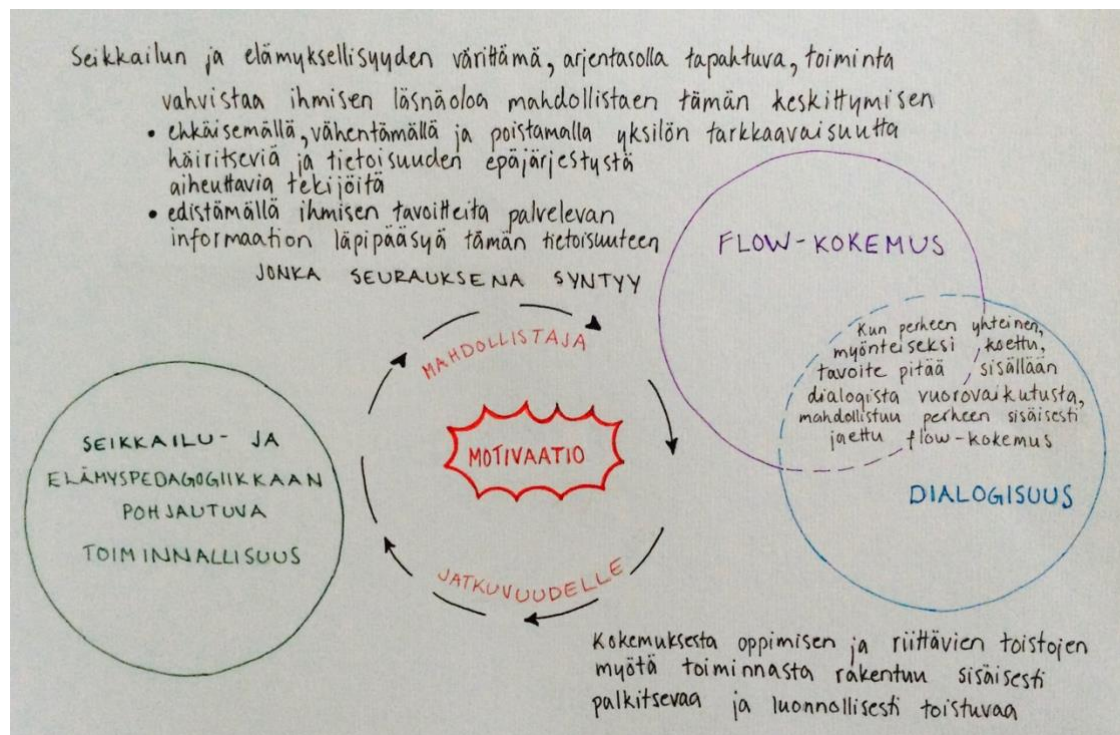 Seikkailun ja elämyksellisyyden värittämä, arjentasolla tapahtuva, toiminta
vahvistaa ihmisen läsnäoloa mahdollistaen tämän keskittymisen
• ehkäisemällä, vähentämällä ja poistamalla yksilön tarkkaavaisuutta
häiritseviä ja tietoisuuden epäjärjestystä
aiheuttavia tekijöitä
• edistämällä ihmisen tavoitteita palvelevan
informaation läpipääsyä tämän tietoisuuteen
JONKA SEURAUKSENA SYNTYY
FLOW-KOKEMUS
Kun perheen yhteinen,
myönteiseksi koettu,
tavoite pitää sisällään
dialogista vuorovaikutusta,
mahdollistuu perheen sisäisesti
jaettu flow-kokemus
DIALOGISUUS
MAHDOLLISTAJA
MOTIVAATIO
JATKUVUUDELLE
SEIKKAILU- JA
ELÄMYSPEDAGOGIIKKAAN
POHJAUTUVA
TOIMINNALLISUUS
Kokemuksesta oppimisen ja riittävien toistojen
myötä toiminnasta rakentuu sisäisesti
palkitsevaa ja luonnollisesti toistuvaa